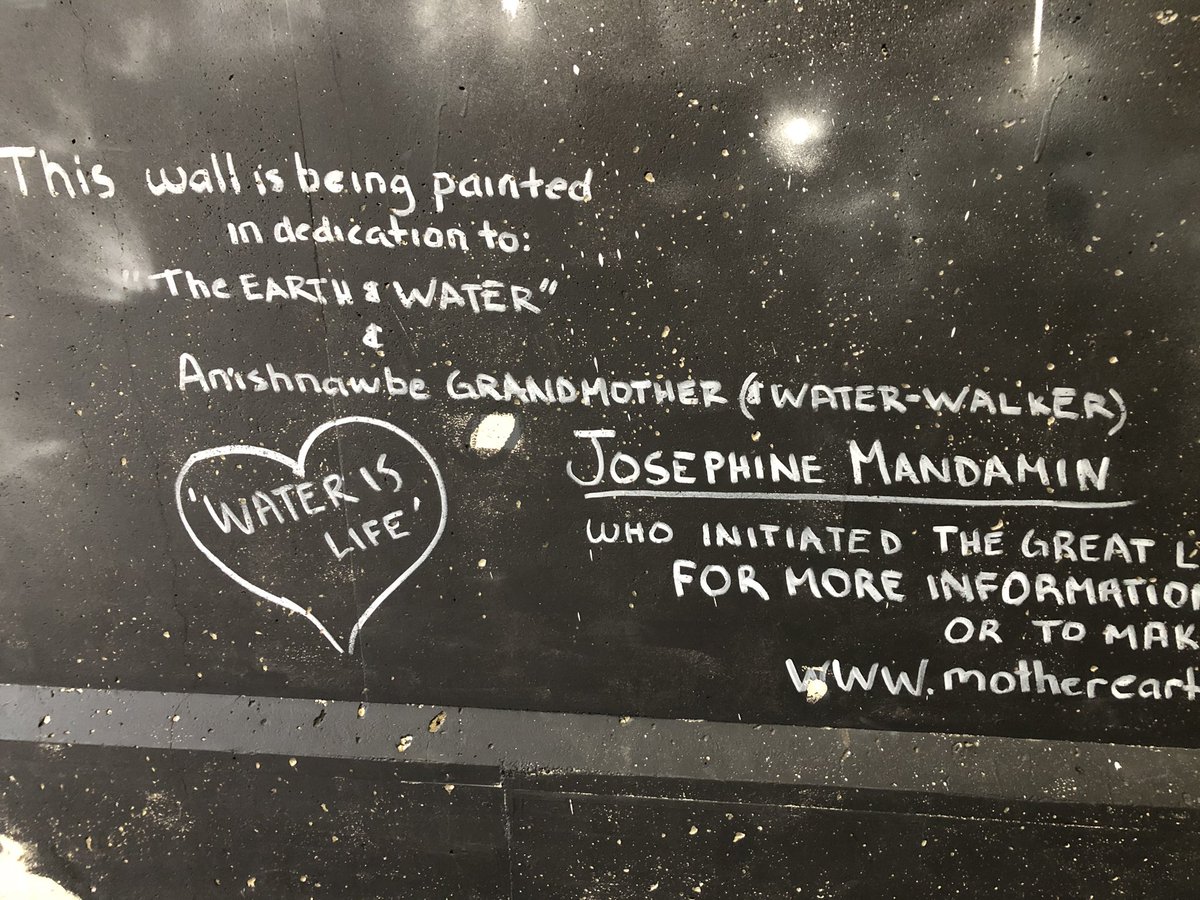 This wall is being painted
in dedication to:
"The EARTH & WATER"
&
Anishnawbe GRANDMOTHER (& WATER-WALKER)
JOSEPHINE MANDAMIN
'WATER IS
LIFE'
WHO INITIATED THE GREAT L
FOR MORE INFORMATION
OR TO MAK
WWW.mothereart